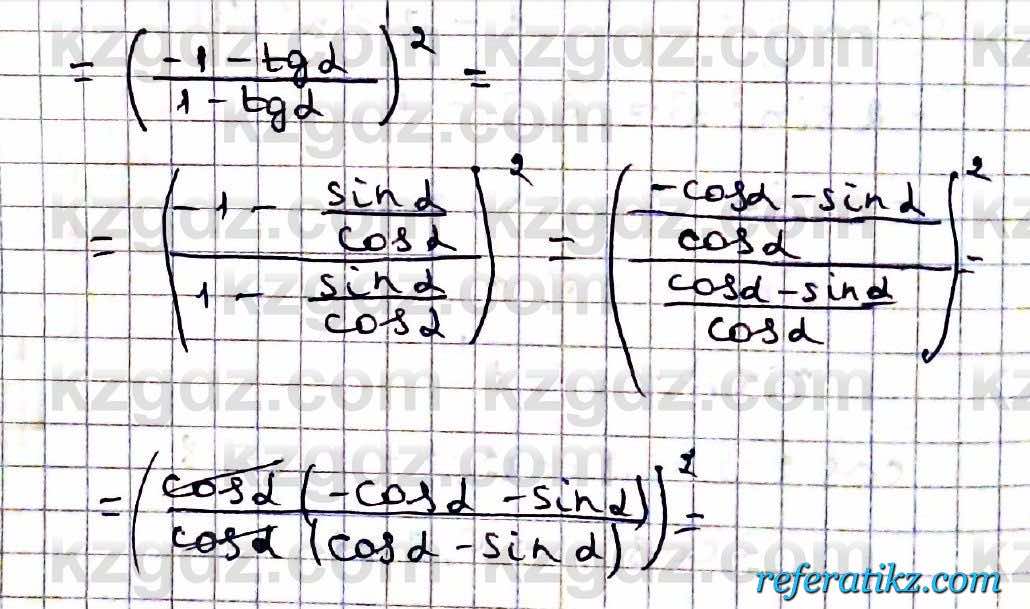 = ( (-1 - tgα) / (1 - tgα) )² =
= ( (-1 - sinα/cosα) / (1 - sinα/cosα) )² = ( ((-cosα - sinα)/cosα) / ((cosα - sinα)/cosα) )² =
= ( cosα(-cosα - sinα) / cosα(cosα - sinα) )² =
kzgdz.com
referatikz.com